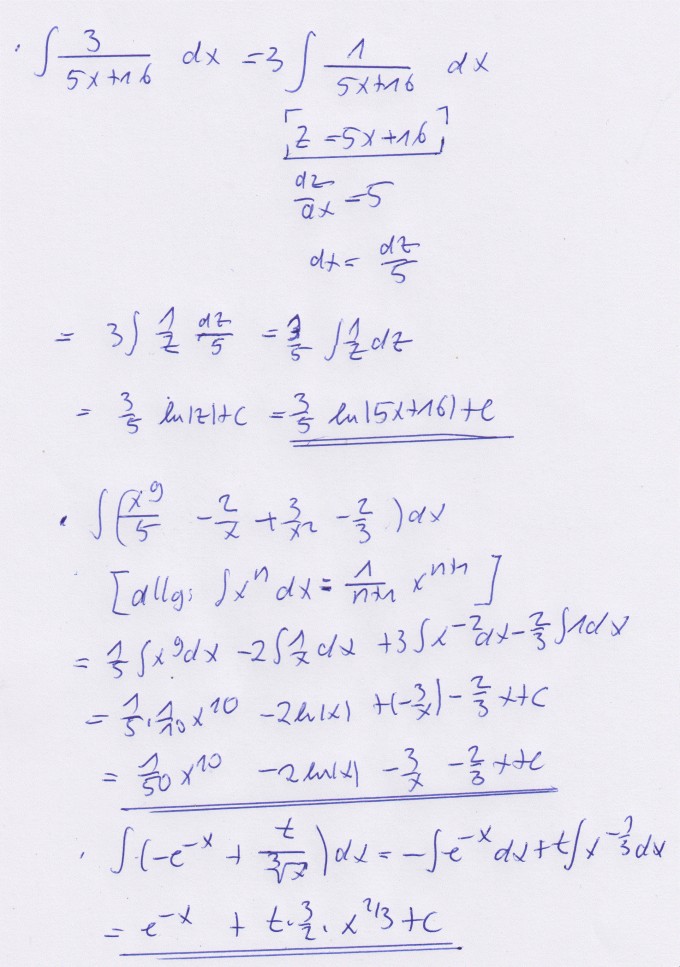 · ∫ 3/(5x+16) dx = 3 ∫ 1/(5x+16) dx
[z = 5x+16]
dz/dx = 5
dx = dz/5
= 3 ∫ 1/z dz/5 = 3/5 ∫ 1/z dz
= 3/5 ln|z|+c = 3/5 ln|5x+16|+c
· ∫ (x^9/5 - 2/x + 3/x^2 - 2/3) dx
[allg: ∫ x^n dx = 1/(n+1) x^(n+1)]
= 1/5 ∫ x^9 dx - 2 ∫ 1/x dx + 3 ∫ x^-2 dx - 2/3 ∫ 1 dx
= 1/5 · 1/10 x^10 - 2 ln|x| + (-3/x) - 2/3 x + c
= 1/50 x^10 - 2 ln|x| - 3/x - 2/3 x + c
· ∫ (-e^-x + t/∛x) dx = - ∫ e^-x dx + t ∫ x^(-1/3) dx
= e^-x + t · 3/2 · x^(2/3) + c